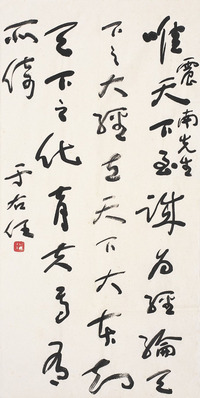 震南先生
唯天下至誠為經綸天
下之大經立天下大本知
天下之化育夫焉有
所倚
于右任